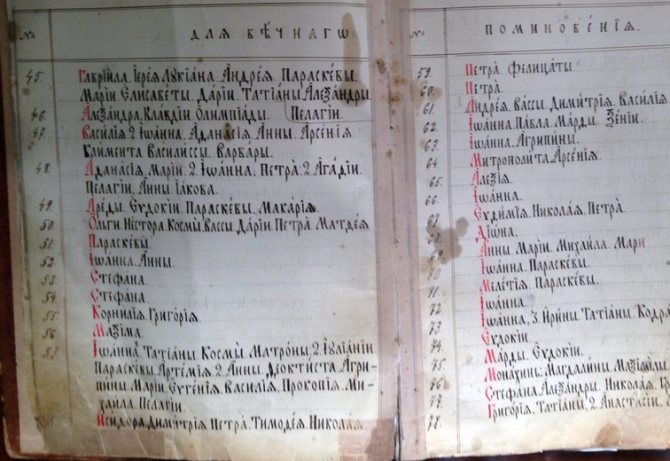 № ДЛЯ ВѢЧНАГѠ
45. Гаврїила. Іерея Лукїана. Андрея. Параскевы.
Марїи. Елисаветы. Дарїи. Татїаны. Алеѯандры.
46. Алеѯандра. Клавдїи. Олимпїады. Пелагїи.
47. Василїа. 2 Іѡанна. Аѳанасїа. Анны. Арсенїа
Климента. Василиссы. Варвары.
48. Аѳанасїа. Марїи. 2. Іѡанна. Петра. 2 Агаѳїи.
Пелагїи. Анны. Іакова.
49. Ареѳы. Еѵдокїи. Параскевы. Макарїа.
50. Ольги. Нестора. Космы. Вассы. Дарїи. Петра. Матѳеа
51. Параскевы.
52. Іѡанна. Анны.
53. Стефана.
54. Стефана.
55. Корнилїа. Григорїа.
56. Маѯїма.
57. Іѡанна. Татїаны. Космы. Матроны. 2. Іулїанїи
Параскевы. Артемїа. 2 Анны. Ѳеоктиста. Агри-
пины. Марїи. Еѵгенїа. Василїа. Прокопїа. Ми-
хаила. Пелагїи.
Исидора. Димитрїа. Петра. Тимоѳеа. Николаа.
№ ПОМИНОВЕНЇѦ.
59. Петра. Фелицаты.
60. Петра.
61. Андреа. Вассы. Димитрїа. Василїа
62. Іѡанна. Павла. Марѳы. Ѯенїи.
63. Іѡанна. Агрипины.
64. Митрополита. Арсенїа.
65. Алеѯїа.
66. Іѡанна.
67. Еѵѳимїа. Николаа. Петра.
Анны. Марїи. Михаила. Мари
Іѡанна. Параскевы.
Мелетїа. Параскевы.
71. Іѡанна.
72. Іѡанна. 3. Ирины. Татїаны. Кодра
73. Еѵдокїи.
74. Марѳы. Еѵдокїи.
75. Монахинь. Магдалины.
76. Стефана. Алеѯандры. Николаа.
77. Григорїа. Татїаны. 2. Анастасїи.
78.